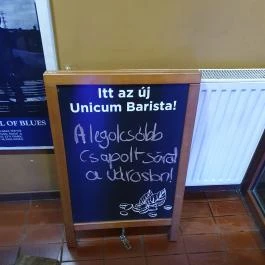 L OF BLUES
Itt az új
Unicum Barista!
A legolcsóbb
Csapolt sörrel
a városban!